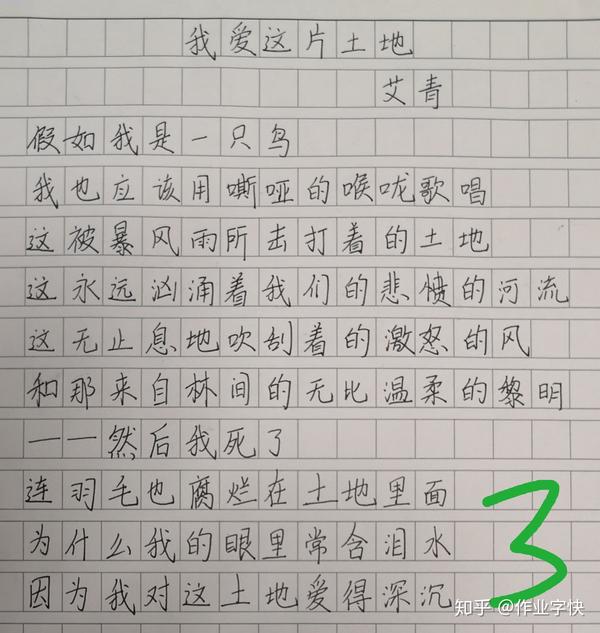 我爱这片土地
艾青
假如我是一只鸟
我也应该用嘶哑的喉咙歌唱
这被暴风雨所击打着的土地
这永远汹涌着我们的悲愤的河流
这无止息地吹刮着的激怒的风
和那来自林间的无比温柔的黎明
——然后我死了
连羽毛也腐烂在土地里面
为什么我的眼里常含泪水
因为我对这土地爱得深沉
3
知乎 @作业字快